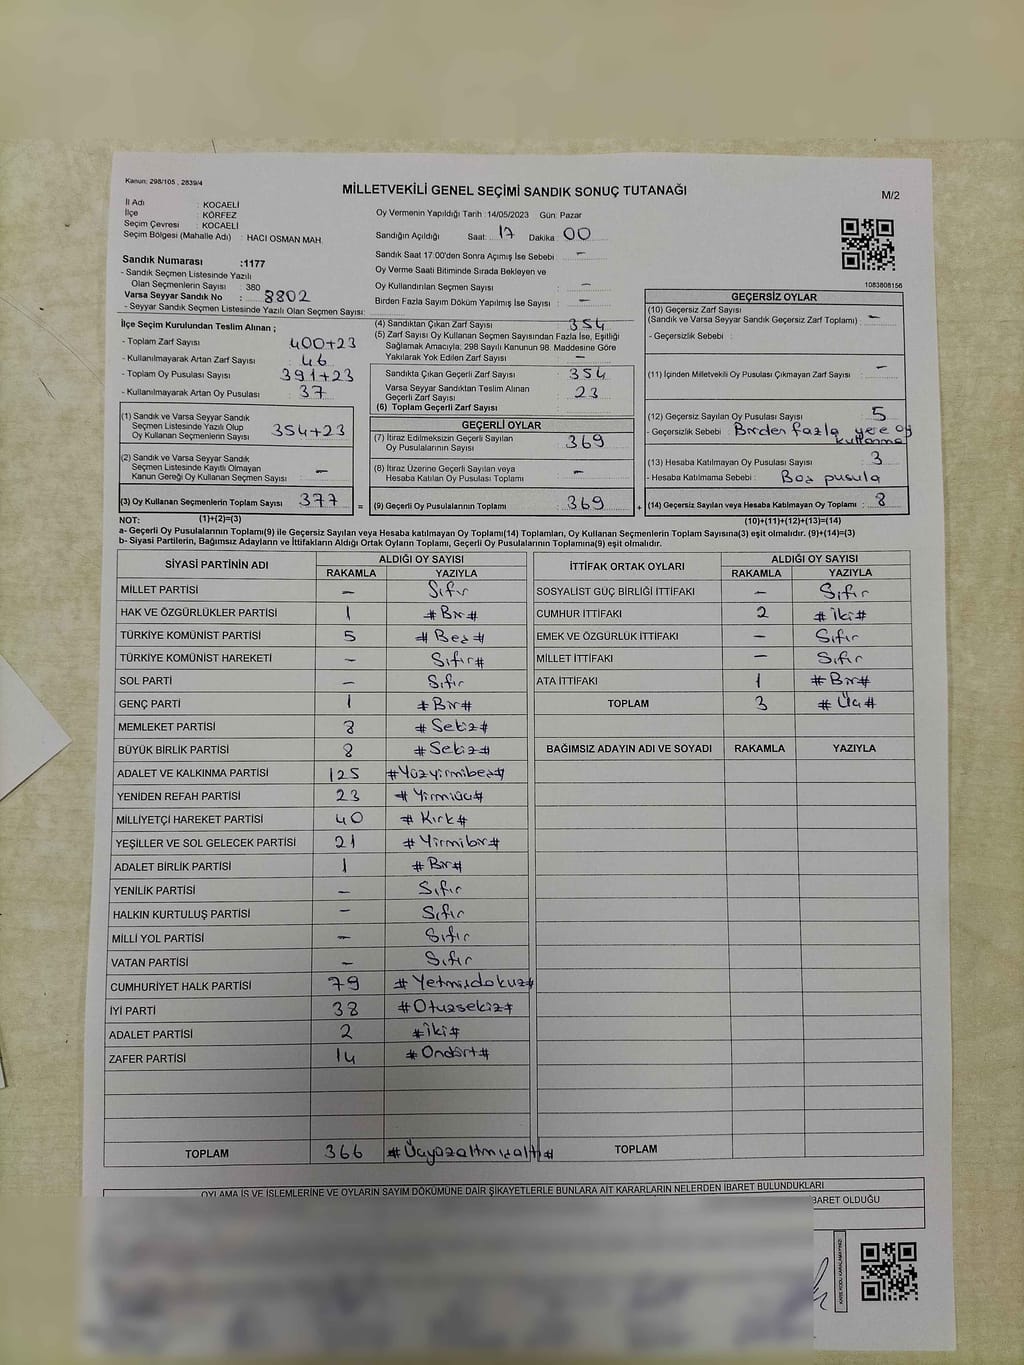 Kanun: 298/105 , 2839/4
MİLLETVEKİLİ GENEL SEÇİMİ SANDIK SONUÇ TUTANAĞI
M/2
İl Adı : KOCAELİ
İlçe : KÖRFEZ
Seçim Çevresi : KOCAELİ
Seçim Bölgesi (Mahalle Adı) : HACI OSMAN MAH.
Sandık Numarası :1177
- Sandık Seçmen Listesinde Yazılı
Olan Seçmenlerin Sayısı : 380
Varsa Seyyar Sandık No : 8802
- Seyyar Sandık Seçmen Listesinde Yazılı Olan Seçmen Sayısı:
İlçe Seçim Kurulundan Teslim Alınan ;
- Toplam Zarf Sayısı 400+23
- Kullanılmayarak Artan Zarf Sayısı : 46
- Toplam Oy Pusulası Sayısı : 391+23
- Kullanılmayarak Artan Oy Pusulası : 37
(1) Sandık ve Varsa Seyyar Sandık
Seçmen Listesinde Yazılı Olup
Oy Kullanan Seçmenlerin Sayısı 354+23
(2) Sandık ve Varsa Seyyar Sandık
Seçmen Listesinde Kayıtlı Olmayan
Kanun Gereği Oy Kullanan Seçmen Sayısı : –
(3) Oy Kullanan Seçmenlerin Toplam Sayısı 377
(1)+(2)=(3)
Oy Vermenin Yapıldığı Tarih :14/05/2023 Gün: Pazar
Sandığın Açıldığı Saat: 17 Dakika 00
Sandık Saat 17:00'den Sonra Açımış İse Sebebi : –
Oy Verme Saati Bitiminde Sırada Bekleyen ve
Oy Kullandırılan Seçmen Sayısı : –
Birden Fazla Sayım Döküm Yapılmış İse Sayısı : –
(4) Sandıktan Çıkan Zarf Sayısı : 354
(5) Zarf Sayısı Oy Kullanan Seçmen Sayısından Fazla İse, Eşitliği
Sağlamak Amacıyla; 298 Sayılı Kanunun 98. Maddesine Göre
Yakılarak Yok Edilen Zarf Sayısı : –
Sandıkta Çıkan Geçerli Zarf Sayısı : 354
Varsa Seyyar Sandıktan Teslim Alınan
Geçerli Zarf Sayısı : 23
(6) Toplam Geçerli Zarf Sayısı :
GEÇERLİ OYLAR
(7) İtiraz Edilmeksizin Geçerli Sayılan
Oy Pusulasının Sayısı : 369
(8) İtiraz Üzerine Geçerli Sayılan veya
Hesaba Katılan Oy Pusulası Toplamı : –
= (9) Geçerli Oy Pusulalarının Toplamı : 369 +
1083808156
GEÇERSİZ OYLAR
(10) Geçersiz Zarf Sayısı
(Sandık ve Varsa Seyyar Sandık Geçersiz Zarf Toplamı) : –
- Geçersizlik Sebebi :
(11) İçinden Milletvekili Oy Pusulası Çıkmayan Zarf Sayısı : –
(12) Geçersiz Sayılan Oy Pusulası Sayısı : 5
- Geçersizlik Sebebi : Birden fazla yere oy
kullanma
(13) Hesaba Katılmayan Oy Pusulası Sayısı : 3
- Hesaba Katılmama Sebebi : Boş pusula
(14) Geçersiz Sayılan veya Hesaba Katılmayan Oy Toplamı : 8
(10)+(11)+(12)+(13)=(14)
NOT:
a- Geçerli Oy Pusulalarının Toplamı(9) ile Geçersiz Sayılan veya Hesaba Katılmayan Oy Toplamı(14) Toplamları, Oy Kullanan Seçmenlerin Toplam Sayısına(3) eşit olmalıdır. (9)+(14)=(3)
b- Siyasi Partilerin, Bağımsız Adayların ve İttifakların Aldığı Ortak Oyların Toplamı, Geçerli Oy Pusulalarının Toplamına(9) eşit olmalıdır.
SİYASİ PARTİNİN ADI ALDIĞI OY SAYISI
RAKAMLA YAZIYLA
MİLLET PARTİSİ – Sıfır
HAK VE ÖZGÜRLÜKLER PARTİSİ 1 #Bir#
TÜRKİYE KOMÜNİST PARTİSİ 5 #Beş#
TÜRKİYE KOMÜNİST HAREKETİ – Sıfır#
SOL PARTİ – Sıfır
GENÇ PARTİ 1 #Bir#
MEMLEKET PARTİSİ 8 #Sekiz#
BÜYÜK BİRLİK PARTİSİ 8 #Sekiz#
ADALET VE KALKINMA PARTİSİ 125 #Yüzyirmibeş#
YENİDEN REFAH PARTİSİ 23 #Yirmiüç#
MİLLİYETÇİ HAREKET PARTİSİ 40 #Kırk#
YEŞİLLER VE SOL GELECEK PARTİSİ 21 #Yirmibir#
ADALET BİRLİK PARTİSİ 1 #Bir#
YENİLİK PARTİSİ – Sıfır
HALKIN KURTULUŞ PARTİSİ – Sıfır
MİLLİ YOL PARTİSİ – Sıfır
VATAN PARTİSİ – Sıfır
CUMHURİYET HALK PARTİSİ 79 #Yetmişdokuz#
İYİ PARTİ 38 #Otuzsekiz#
ADALET PARTİSİ 2 #İki#
ZAFER PARTİSİ 14 #Ondört#
TOPLAM 366 #Üçyüzaltmışaltı#
İTTİFAK ORTAK OYLARI ALDIĞI OY SAYISI
RAKAMLA YAZIYLA
SOSYALİST GÜÇ BİRLİĞİ İTTİFAKI – Sıfır
CUMHUR İTTİFAKI 2 #İki#
EMEK VE ÖZGÜRLÜK İTTİFAKI – Sıfır
MİLLET İTTİFAKI – Sıfır
ATA İTTİFAKI 1 #Bir#
TOPLAM 3 #Üç#
BAĞIMSIZ ADAYIN ADI VE SOYADI RAKAMLA YAZIYLA
TOPLAM
OYLAMA İŞ VE İŞLEMLERİNE VE OYLARIN SAYIM DÖKÜMÜNE DAİR ŞİKAYETLERLE BUNLARA AİT KARARLARIN NELERDEN İBARET BULUNDUKLARI
BARET OLDUĞU
KARE KODU KARALAMAYINIZ!